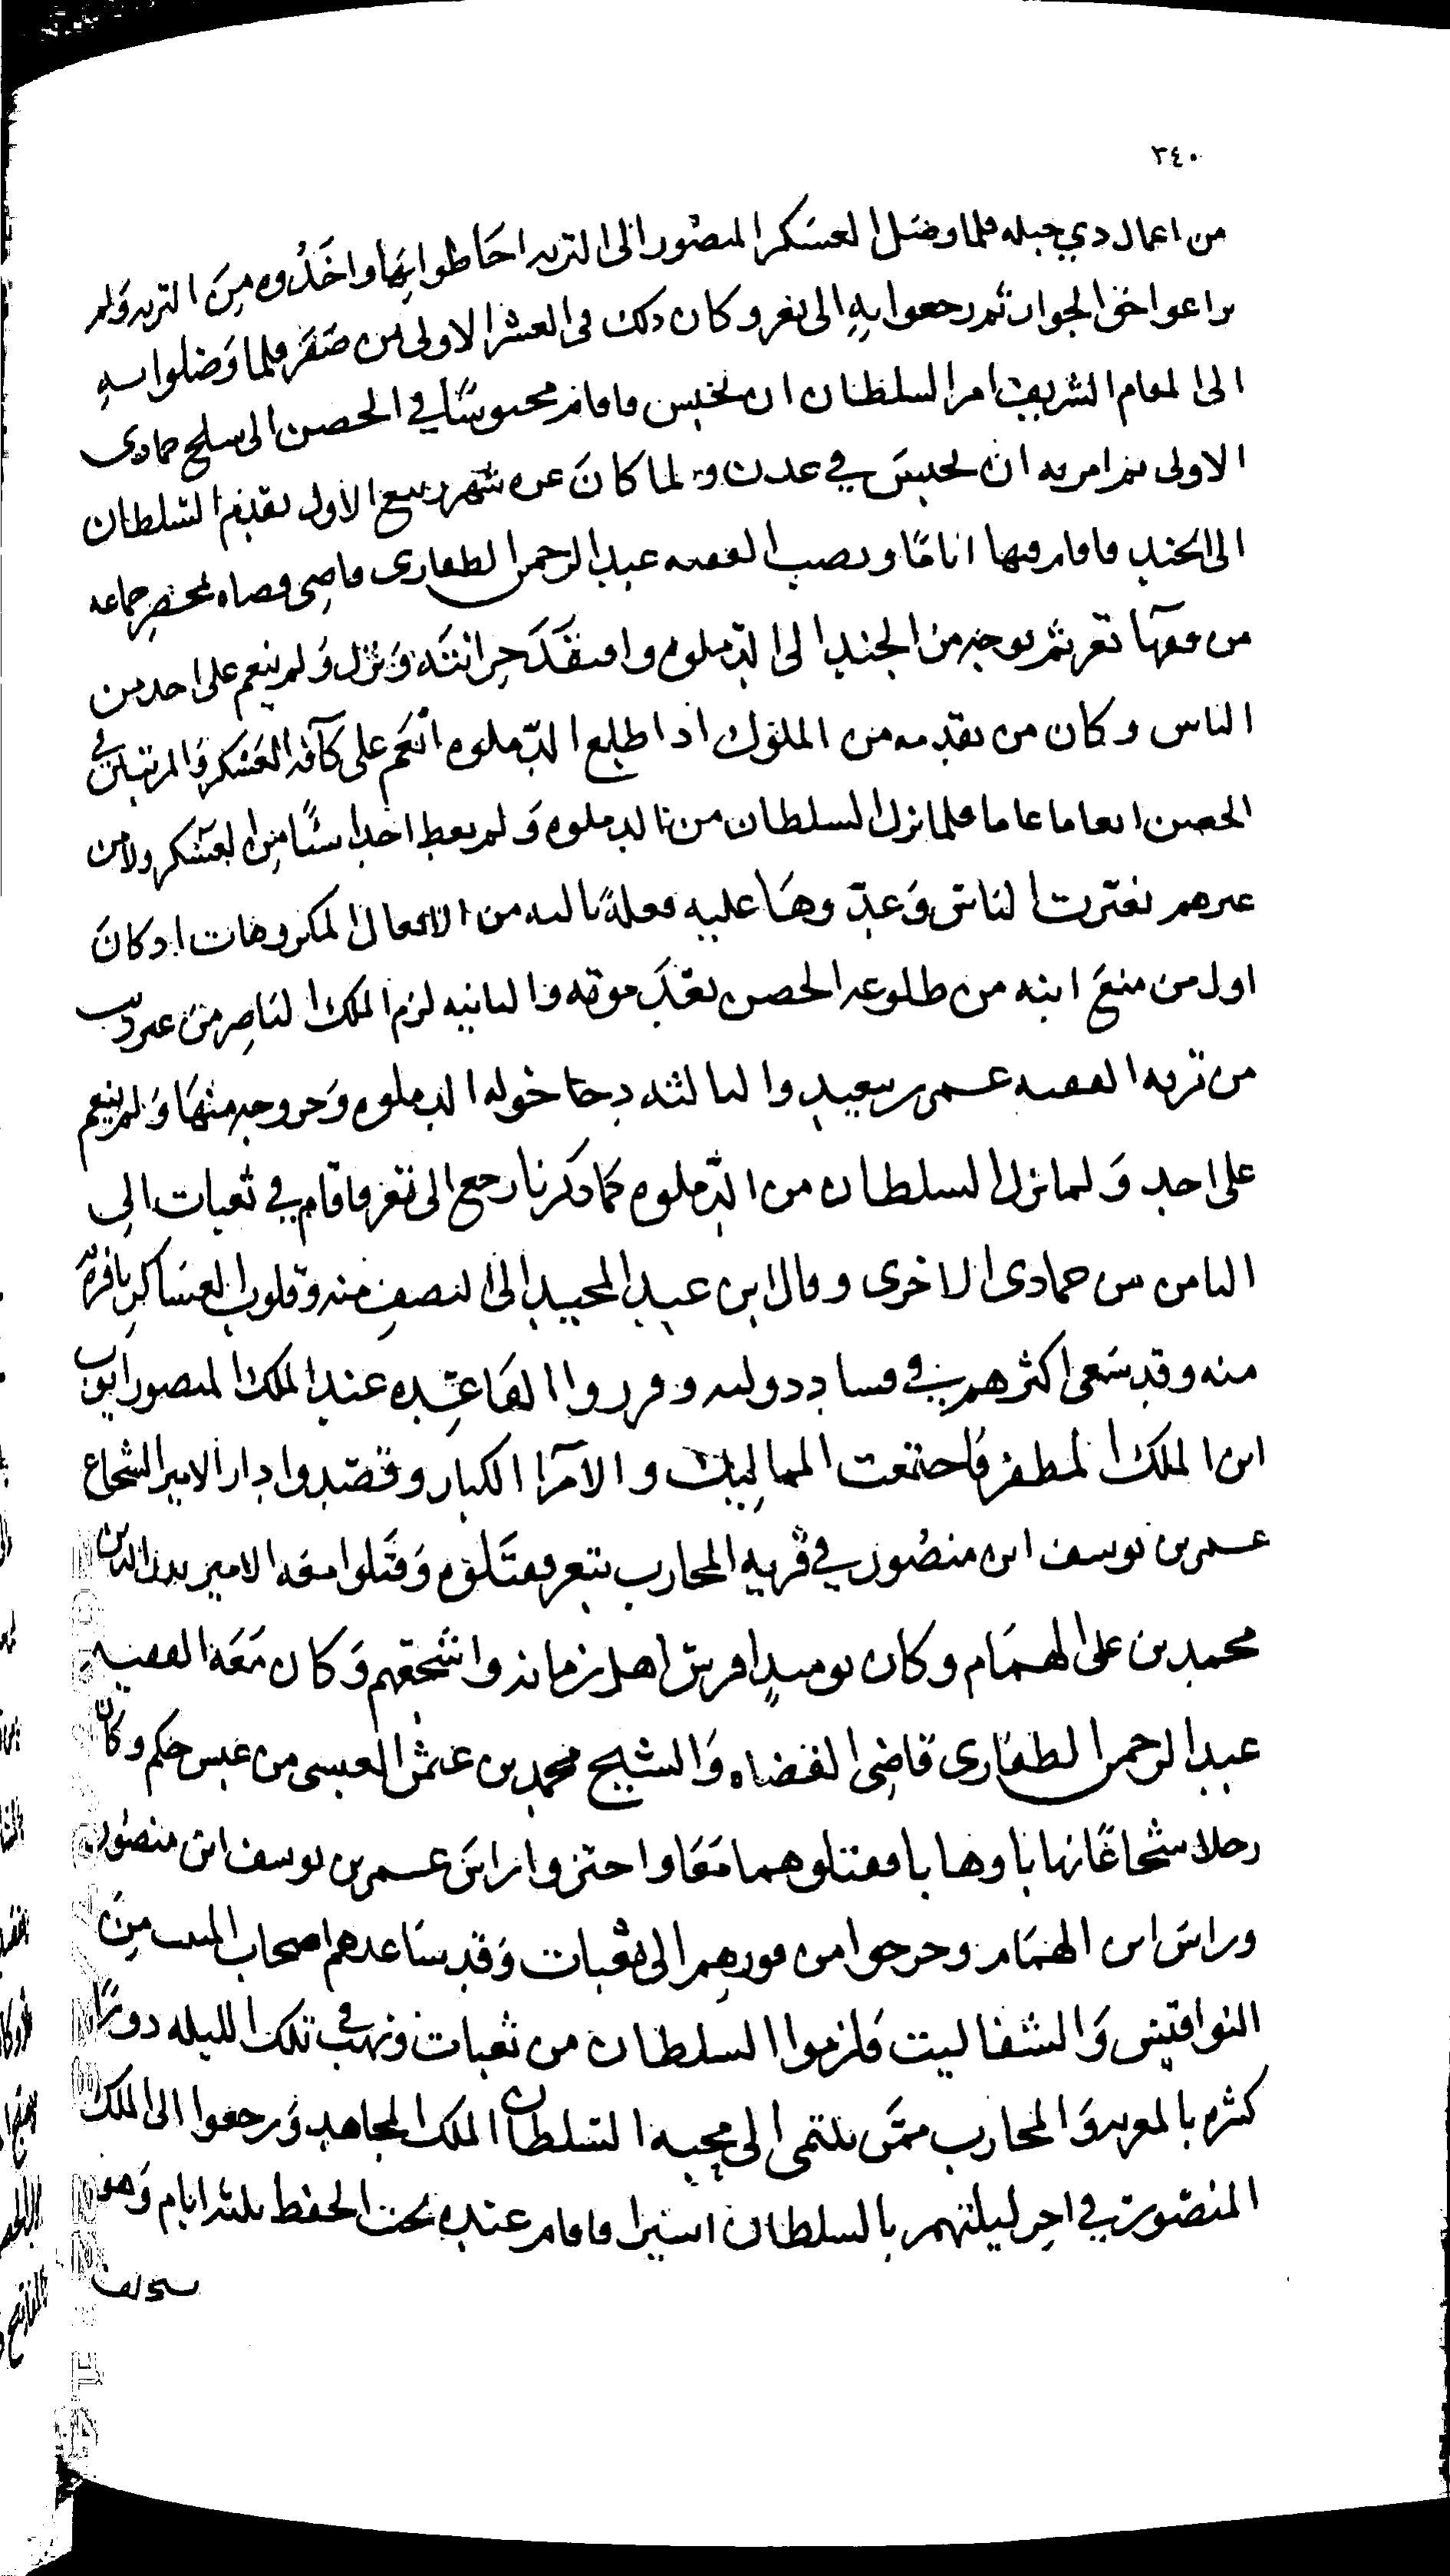 ٣٤٠
من اعمال ذي جبله فلما وصل العسكر المنصور الى التربه احاطوا بها واخذوه من التربه ولم
يراعوا حق الجوار ثم رجعوا به الى تعز وكان ذلك في العشر الاولى من صفر فلما وصلوا به
الى المقام الشريف امر السلطان ان يحبس فاقام محبوسا في الحصن الى سلخ جمادى
الاولى ثم امر به ان يحبس في عدن ولما كان غره شهر ربيع الاول تقدم السلطان
الى الجند فاقام فيها اياما ونصب الفقيه عبد الرحمن الظفارى قاضى قضاه بمحضر جماعه
من فقها تعز ثم توجه من الجند الى الدملوه وافتقد خزانته ونزل ولم ينعم على احد من
الناس وكان من تقدمه من الملوك اذا طلع الدملوه انعم على كافه العسكر والمرتبين في
الحصن انعاما عاما فلما نزل السلطان من الدملوه ولم يعط احدا شيا من العسكر ولا من
غيرهم تغيرت الناس وعدوها عليه فعلة ثالثه من الافعال المكروهات اذ كان
اول من منع ابنه من طلوعه الحصن بعد موته والثانيه لزم الملك الناصر من غير ذنب
من تربه الفقيه عمر بن سعيد والثالثه دخوله الدملوه وخروجه منها ولم ينعم
على احد ولما نزل السلطان من الدملوه كما ذكرنا رجع الى تعز فاقام في ثعبات الى
الثامن من جمادى الاخرى وقال ابن عبد المجيد الى النصف منه وقلوب العساكر نافره
منه وقد سعى اكثرهم في فساد دولته وقرروا القاعده عند الملك المنصور ايوب
ابن الملك المظفر فاجتمعت المماليك والامرا الكبار وقصدوا دار الامير الشجاع
عمر بن يوسف ابن منصور في قريه المحارب بتعز فقتلوه وقتلوا معه الامير بدر الدين
محمد بن على الهمام وكان يوميذ افرس اهل زمانه واشجعهم وكان معه الفقيه
عبد الرحمن الظفارى قاضى القضاه والشيخ محمد بن عثمن العبسى من عبس حكم وكان
رجلا شجاعا نهابا وهابا فقتلوهما معا واحتزوا راس عمر بن يوسف ابن منصور
وراس ابن الهمام وخرجوا من فورهم الى ثعبات وقد ساعدهم اصحاب المبيت من
النواقيس والشفاليت فلزموا السلطان من ثعبات ونهب في تلك الليله دورا
كثره بالمغربه والمحارب ممن ينتمى الى محبه السلطان الملك المجاهد ورجعوا الى الملك
المنصور في اخر ليلتهم بالسلطان اسيرا فاقام عنده تحت الحفظ ثلثه ايام وهو